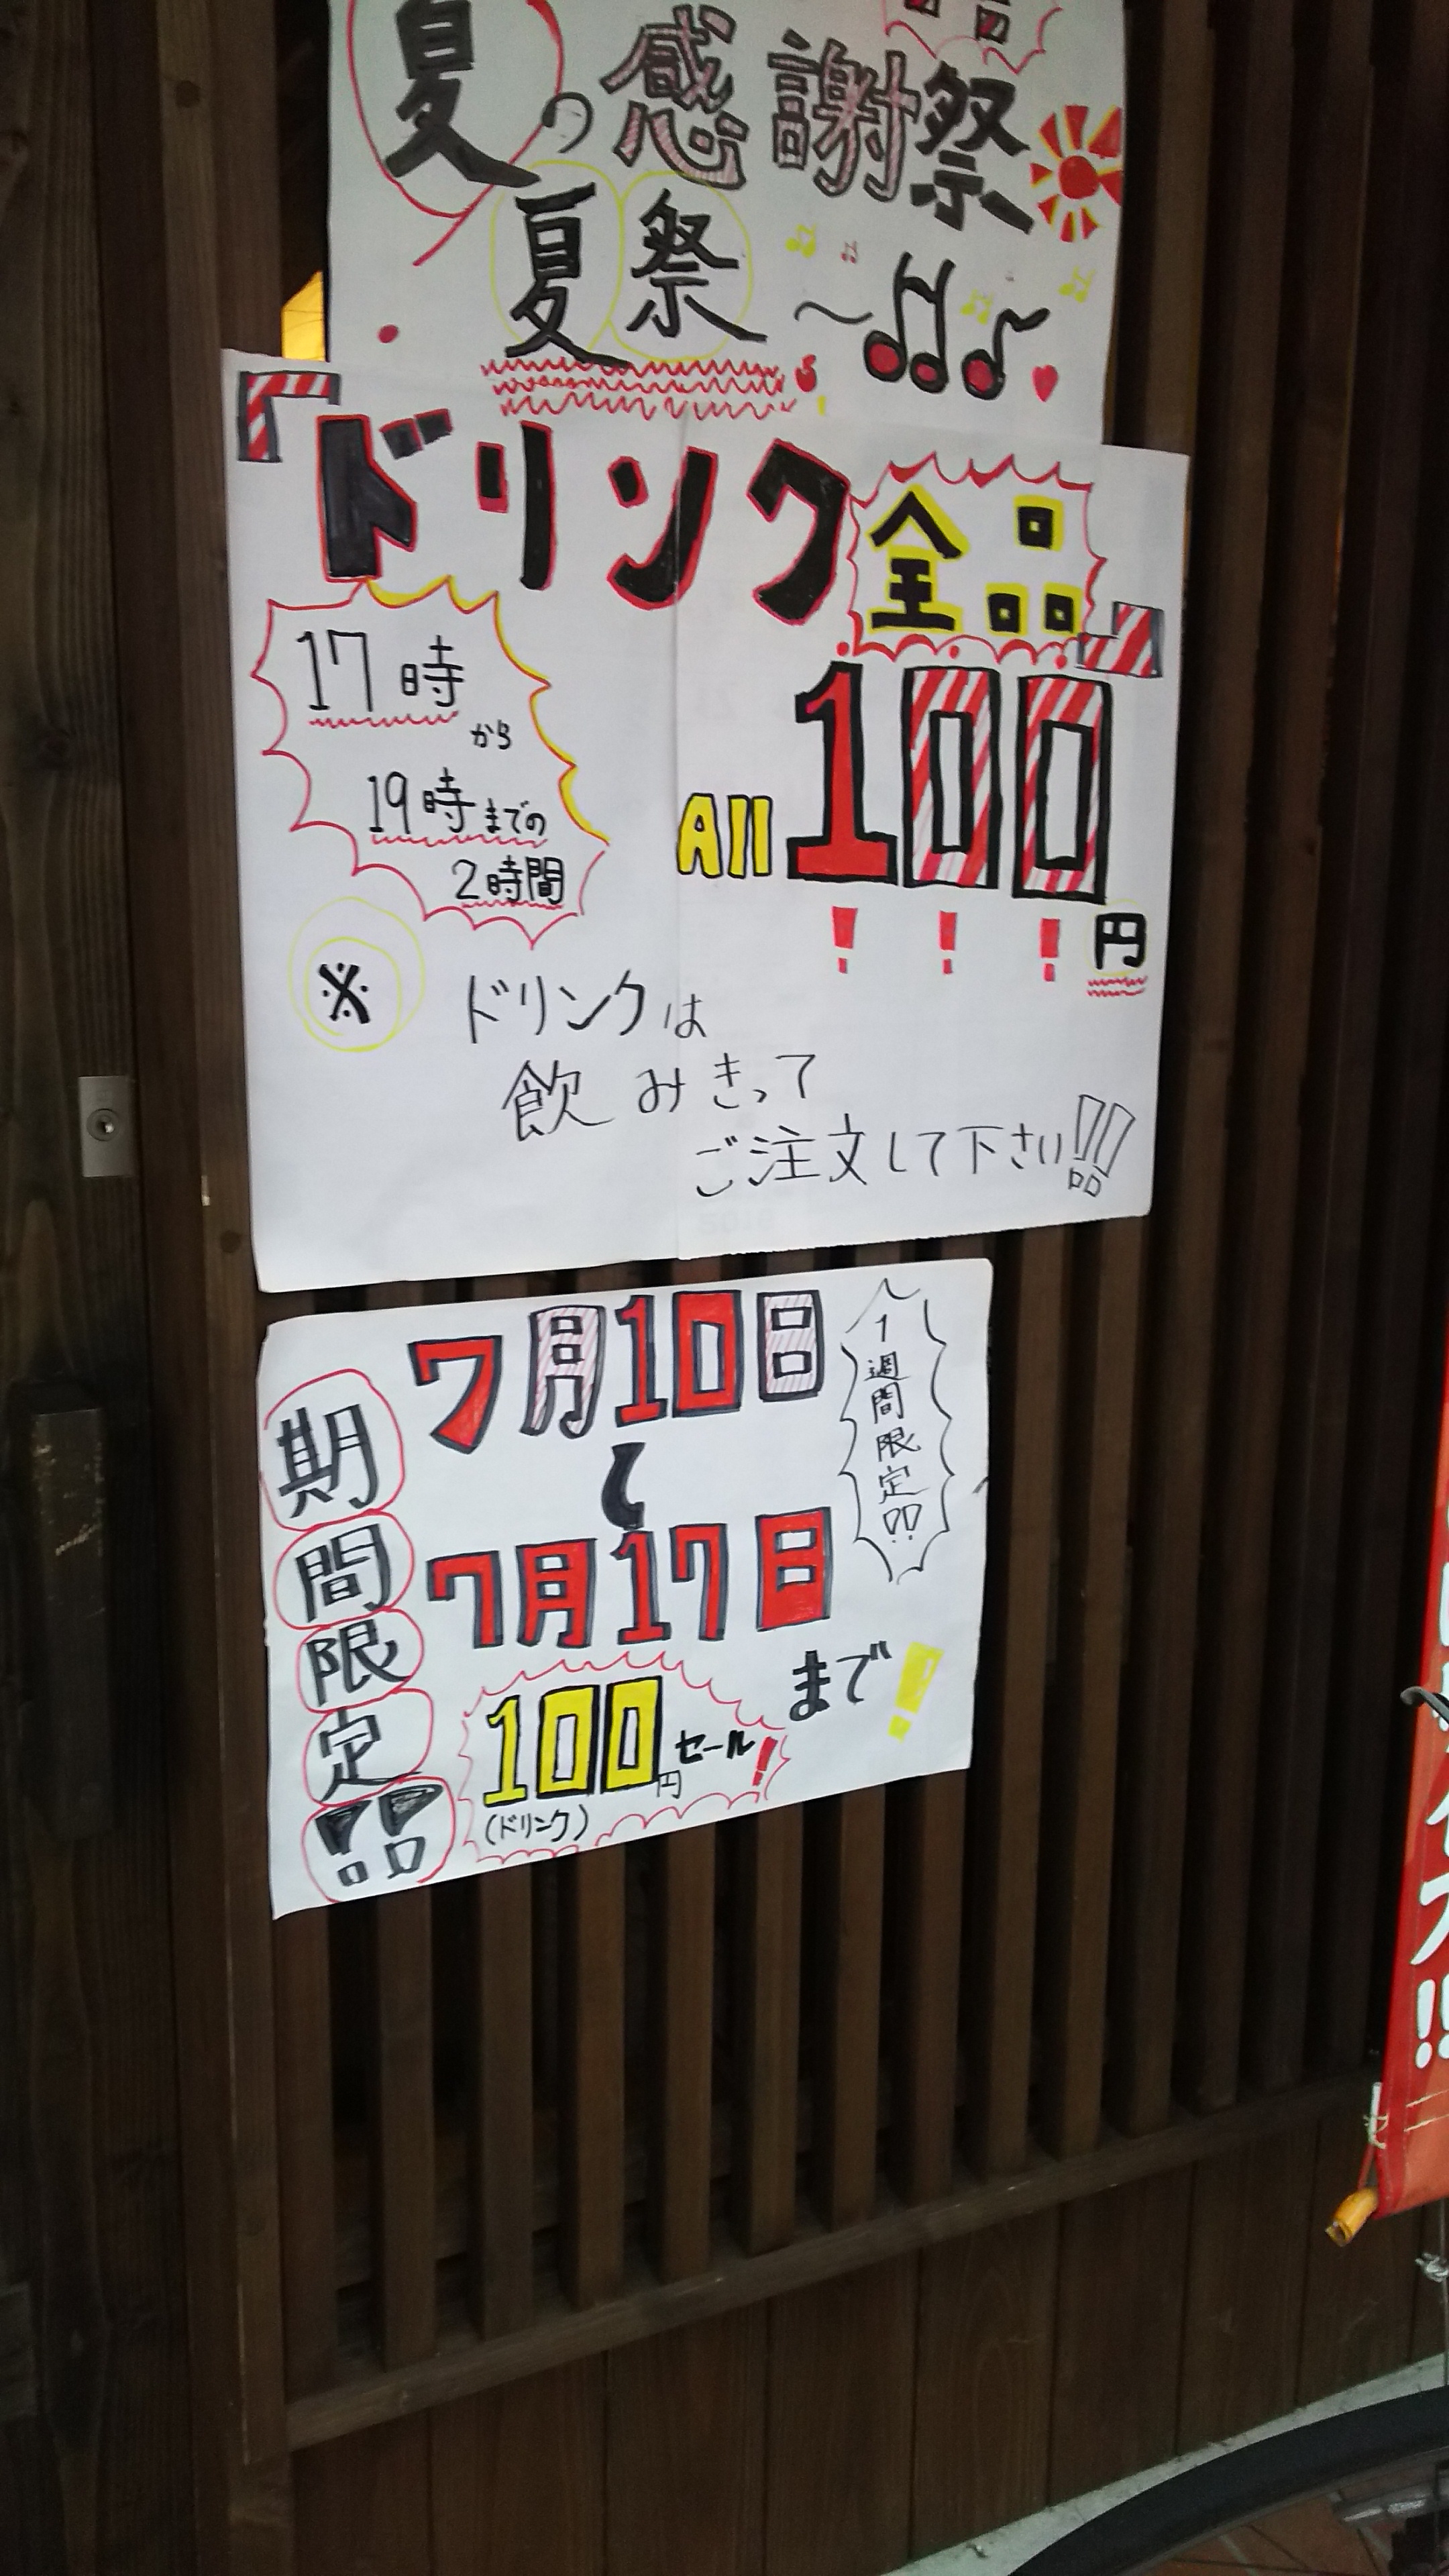 夏の感謝祭
夏祭～♪♪
『ドリンク全品』
17時
から
19時までの
2時間
All 100
!!!円
※ドリンクは
飲みきって
ご注文して下さい!!!
期間限定!!
7月10日
〜
7月17日
まで!
1週間限定!!
100円セール!
(ドリンク)